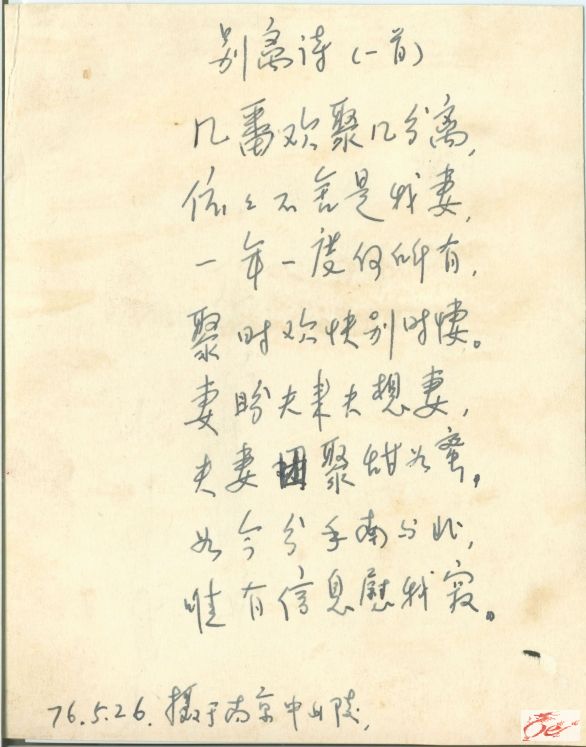 别离诗(一首)
几番欢聚几分离,
依々不舍是我妻,
一年一度何所有,
聚时欢快别时悽。
妻盼夫来夫想妻,
夫妻团聚甜如蜜,
如今分手南与北,
唯有信息慰我寂。
76.5.26.摄于南京中山陵,